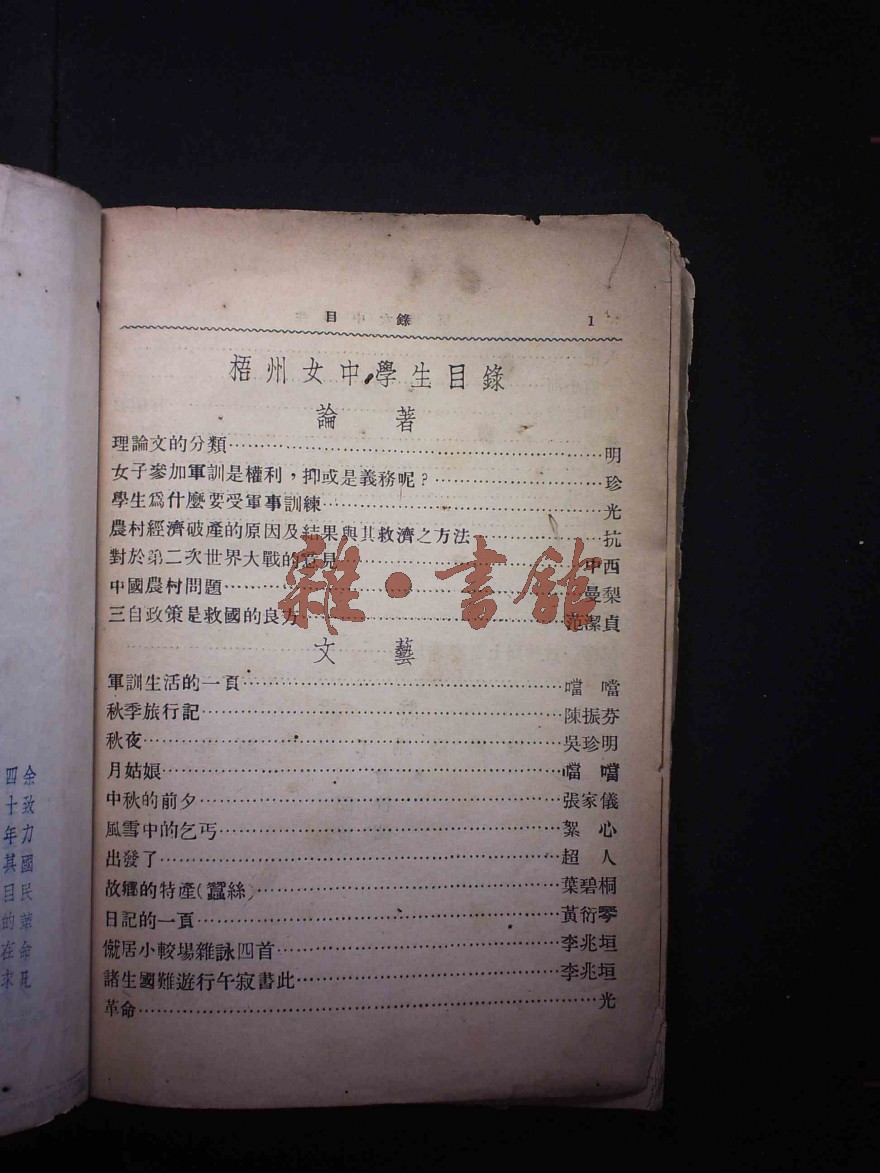 目錄 1
梧州女中學生目錄
論著
理論文的分類……明
女子參加軍訓是權利，抑或是義務呢？……珍
學生爲什麼要受軍事訓練……光
農村經濟破產的原因及結果與其救濟之方法……抗
對於第二次世界大戰的意見……中西
中國農村問題……曼梨
三自政策是救國的良方……范潔貞
雜·書館
文藝
軍訓生活的一頁……噹噹
秋季旅行記……陳振芬
秋夜……吳珍明
月姑娘……噹噹
中秋的前夕……張家儀
風雪中的乞丐……絮心
出發了……超人
故鄉的特產(蠶絲)……葉碧桐
日記的一頁……黃衍琴
僦居小較場雜詠四首……李兆垣
諸生國難遊行午寂書此……李兆垣
革命……光
余致力國民革命凡
四十年其目的在求